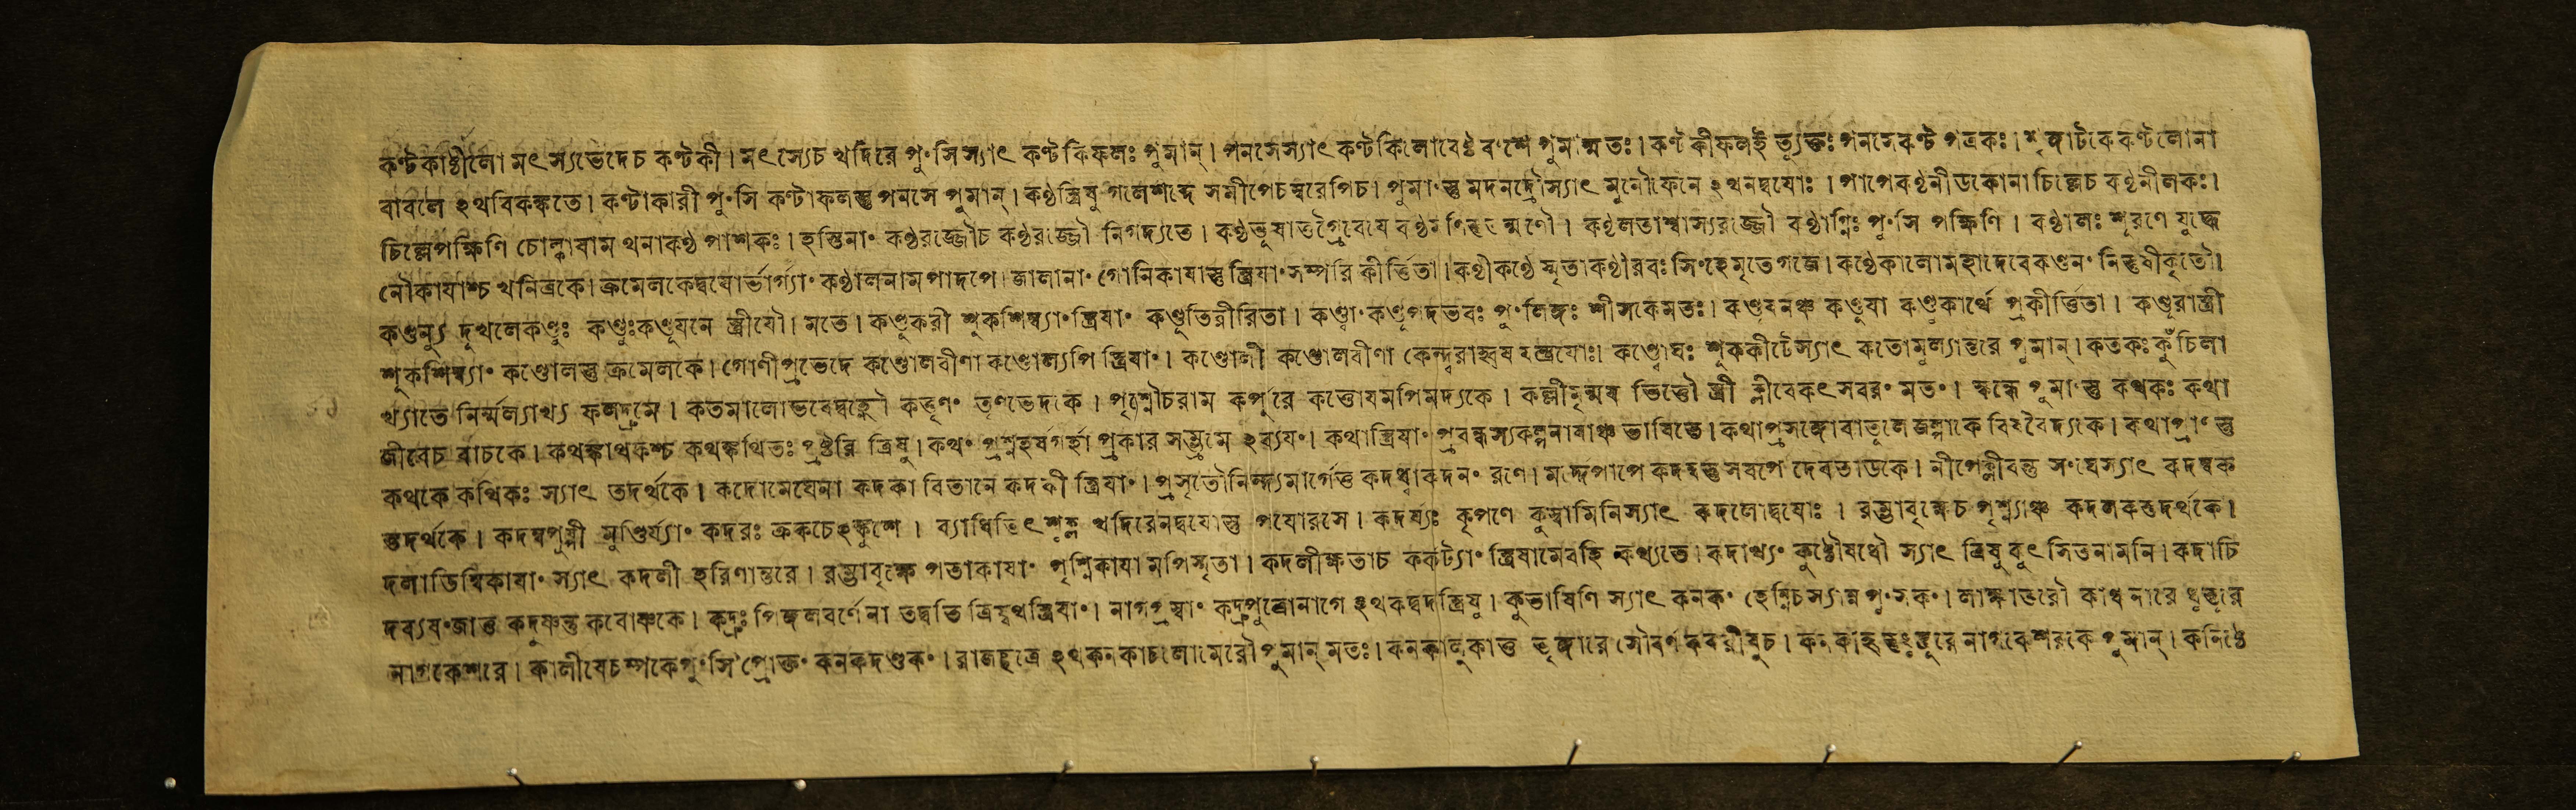 কণ্টকাষ্ঠীলো মৎস্যভেদেচ কণ্টকী। মৎস্যেচ খদিরে পুংসিস্যাৎ কণ্টকিফলঃ পুমান্। পনসেস্যাৎ কণ্টকিলোবেষ্টবংশে পুমান্মতঃ। কণ্টকীফলই ত্যুক্তঃ পনসেকণ্ট পত্রকঃ। শৃঙ্গাটকেকণ্টলোনা
বাবলে ঽথবিকঙ্কতে। কণ্টাকারী পুংসি কণ্টাফলস্তু পনসে পুমান্। কণ্ঠস্ত্রিষু গলেশব্দে সমীপেচস্বরেপিচ। পুমাংস্তু মদনদ্রৌস্যাৎ মুনৌফেনে ঽথনদ্বযোঃ। পাপেকণ্ঠনীডকোনা চিল্লেচ কণ্ঠনীলকঃ।
চিল্লেপক্ষিণি চোল্কাযাম থনাকণ্ঠ পাশকঃ। হস্তিনাং কণ্ঠরজ্জৌচ কণ্ঠরজ্জৌ নিগদ্যতে। কণ্ঠভূষাতগ্রৈবেযে কণ্ঠমণি কণ্ঠলতাশ্বাস্যরজ্জৌ কণ্ঠাগ্নিঃ পুংসি পক্ষিণি। কণ্ঠালঃ শূরণে যুদ্ধে
নৌকাযাশ্চ খনিত্রকে। ক্রমেলকেদ্বযোর্ভার্গ্যাং কণ্ঠালনামপাদপে। জালানাং গোনিকাযাস্তু স্ত্রিযাং সম্পরি কীর্ত্তিতা। কণ্ঠীকণ্ঠে স্মৃতাকণ্ঠীরবঃ সিংহেমৃতেগজে। কণ্ঠেকালোমহাদেবেকণ্ডনং নিস্তুষীকৃতৌ।
কণ্ডূঃকণ্ডূযনে স্ত্রীযৌ। মতে। কণ্ডূকরী শূকশিম্ব্যাংস্ত্রিযাং কণ্ডূতিরীরিতা। পুংলিঙ্গঃ শীসকেমতঃ। কণ্ডূযনঞ্চ কণ্ডূযা প্রকীর্ত্তিতা। কণ্ডূরাস্ত্রী
শূকশিম্ব্যাং কণ্ডোলস্তু ক্রমেলকে। গোণীপ্রভেদে কণ্ডোলবীণা কণ্ডোল্যপি স্ত্রিযাং। কণ্ডোলী কণ্ডোলবীণা শূককীটেস্যাৎ কতোমূল্যান্তরে পুমান্। কতকঃ কুঁচিলা
খ্যাতে নির্ম্মল্যাখ্য ফলদ্রুমে। কতমালোভবেদ্বহ্নৌ কত্তৃণং তৃণভেদকে। পৃশ্নৌচরাম কর্পূরে কত্তোযমপিমদ্যকে। ভিত্তৌ স্ত্রী ক্লীবেকৎসবরং মতং। স্কন্ধে পুমাংস্তু কথকঃ কথা
জীবেচ বাচকে। কথঙ্কাথকশ্চ কথঙ্কথিতঃ প্রষ্টরি ত্রিষু। কথং প্রশ্নহর্ষগর্হা প্রকার সম্ভ্রমে ঽব্যযং। কথাস্ত্রিযাং প্রবন্ধস্যকল্পনাযাঞ্চ ভাষিতে। কথাপ্রসঙ্গোবাতূলে জল্পাকে বিষবৈদ্যকে। কথাপ্রাংস্তু
কথকে কথিকঃ স্যাৎ তদর্থকে। কদোমেঘেনা কদকা বিতানে স্ত্রিযাং। প্রসৃতৌনিন্দ্যমার্গেত্ত কদধ্বাকদনং রণে। মর্দ্দেপাপে সর্ষপে দেবতাডকে। নীপেক্লীবন্তু সংঘেস্যাৎ কদম্বক
স্তদর্থকে। কদম্বপুষ্পী মুণ্ডির্য্যাং কদরঃ ক্রকচেঽঙ্কুশে। খদিরেনদ্বযোস্তু পযোরসে। কদর্য্যঃ কৃপণে কুস্বামিনিস্যাৎ কদলোদ্বযোঃ। রম্ভাবৃক্ষেচ পৃশ্ন্যাঞ্চ কদলকস্তদর্থকে।
দলাডিম্বিকাযাং স্যাৎ কদলী হরিণান্তরে। রম্ভাবৃক্ষে পতাকাযাং পৃশ্নিকাযা মপিস্মৃতা। কদলীক্ষতাচ কর্কট্যাং স্ত্রিযামেবহি কথ্যতে। কদাখ্যং কুষ্ঠৌষধৌ স্যাৎ ত্রিষু কুৎসিতনামনি। কদাচি
কদুষ্ণন্তু কবোষ্ণকে। কদ্রুঃ পিঙ্গলবর্ণেনা তদ্বতি স্ত্রিযাং। নাগপ্রস্বাং কদ্রুপুত্রোনাগে ঽথকদ্বদস্ত্রিষু। কুভাষিণি স্যাৎ কনকং হেম্নিচস্যান্ন পুংসকং। লাক্ষাতরৌ কাঞ্চনারে ধুস্তূরে
নাগকেশরে। কালীযেচম্পকেপুংসি প্রোক্তং কনকদণ্ডকং। রাজছত্রে ঽথকনকাচলোমেরৌপুমান্ মতঃ। কনকালুকাত্ত ভৃঙ্গারে নাগকেশরকে পুমান্। কনিষ্ঠে